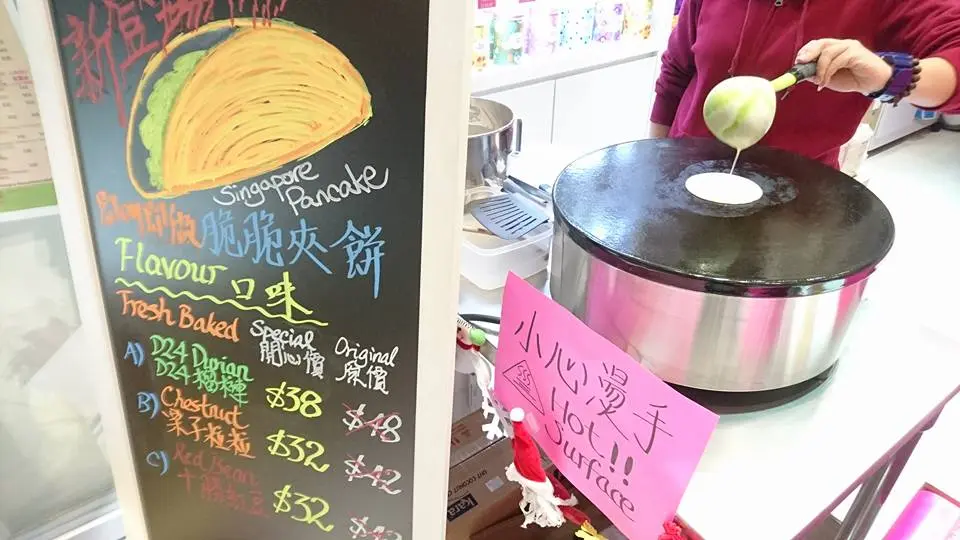 新登場!!!
Singapore
Pancake
脆脆夾餅
Flavour 口味
Fresh Baked
Special
開心價
Original
原價
A) D24 Durian
D24 榴槤
$38
$48
B) Chestnut
栗子粒粒
$32
$42
C) Red Bean
紅豆
$32
小心燙手
Hot!!
Surface
kara